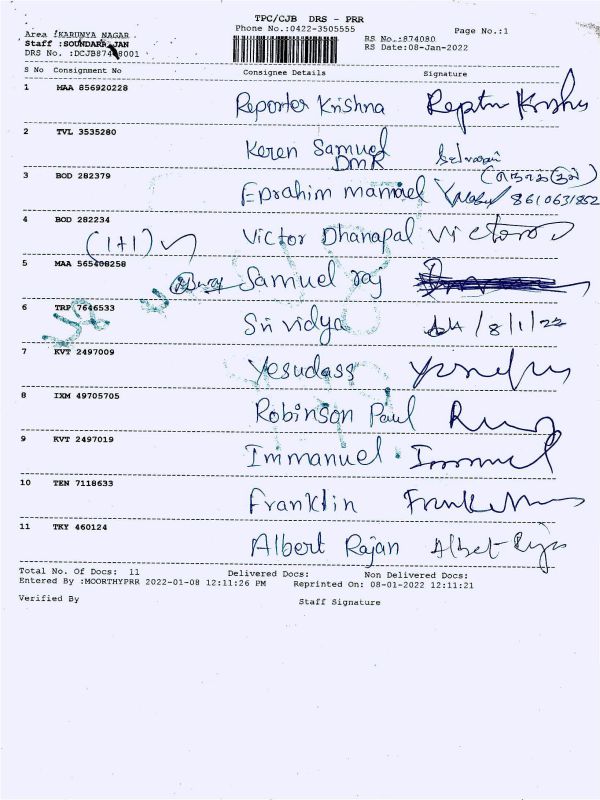 TPC/CJB DRS - PRR
Phone No.:0422-3505555
Page No.:1
Area :KARUNYA NAGAR
RS No.:874080
Staff :SOUNDARRAJAN
RS Date:08-Jan-2022
DRS No. :DCJB874 8001
S No Consignment No Consignee Details Signature
1 MAA 856920228 Reporter Krishna
2 TVL 3535280 Keren Samuel
DMK
3 BOD 282379 Eprahim manniel 8610631852
4 BOD 282234 Victor Dhanapal Victor
(1+1)
5 MAA 565408258 Samuel raj
6 TRP 7646533 Sri vidya /8/1/22
7 KVT 2497009 Yesudass
8 IXM 49705705 Robinson Paul
9 KVT 2497019 Immanuel
10 TEN 7118633 Franklin
11 TKY 460124 Albert Rajan
Total No. Of Docs: 11 Delivered Docs: Non Delivered Docs:
Entered By :MOORTHYPRR 2022-01-08 12:11:26 PM Reprinted On: 08-01-2022 12:11:21
Verified By Staff Signature